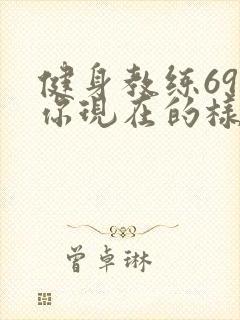 健身教练69
你现在的様
曾卓琳